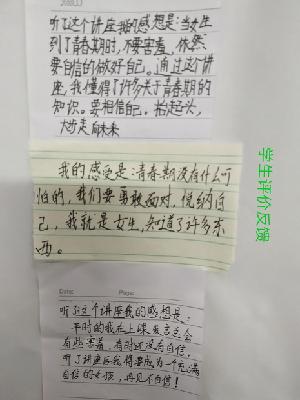 听了这个讲座我的感想是:当女生
到了青春期时,不要害羞,依然
要自信的做好自己。通过这个讲
座,我懂得了许多关于青春期的
知识。要相信自己,抬起头,
大步走向未来
我的感受是:青春期没有什么可
怕的,我们要勇敢面对,悦纳自
己,我就是女生,知道了许多东
西。
学生评价反馈
Date: Page:
听了这个讲座我的感想是:
平时的我在上课发言总会
有些害羞,有时还没有自信,
听了讲座后我将要成为一个充满
自信的女孩,再见不自信!